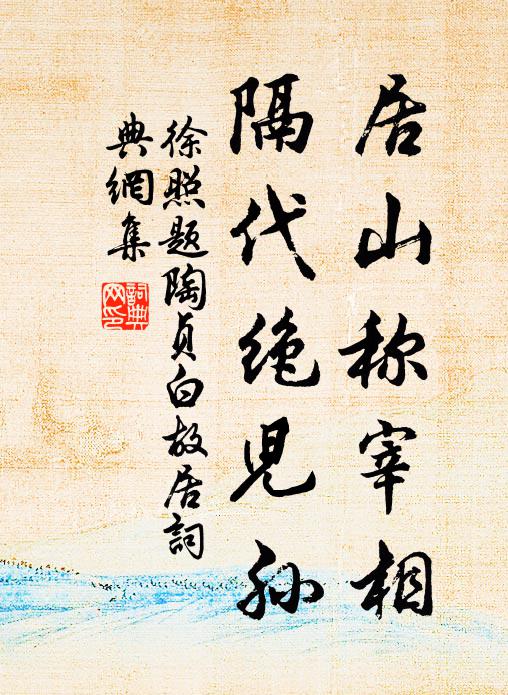 居山称宰相
隔代绝兒孙
徐照题陶贞白故居詞
典網集
詞典
网印